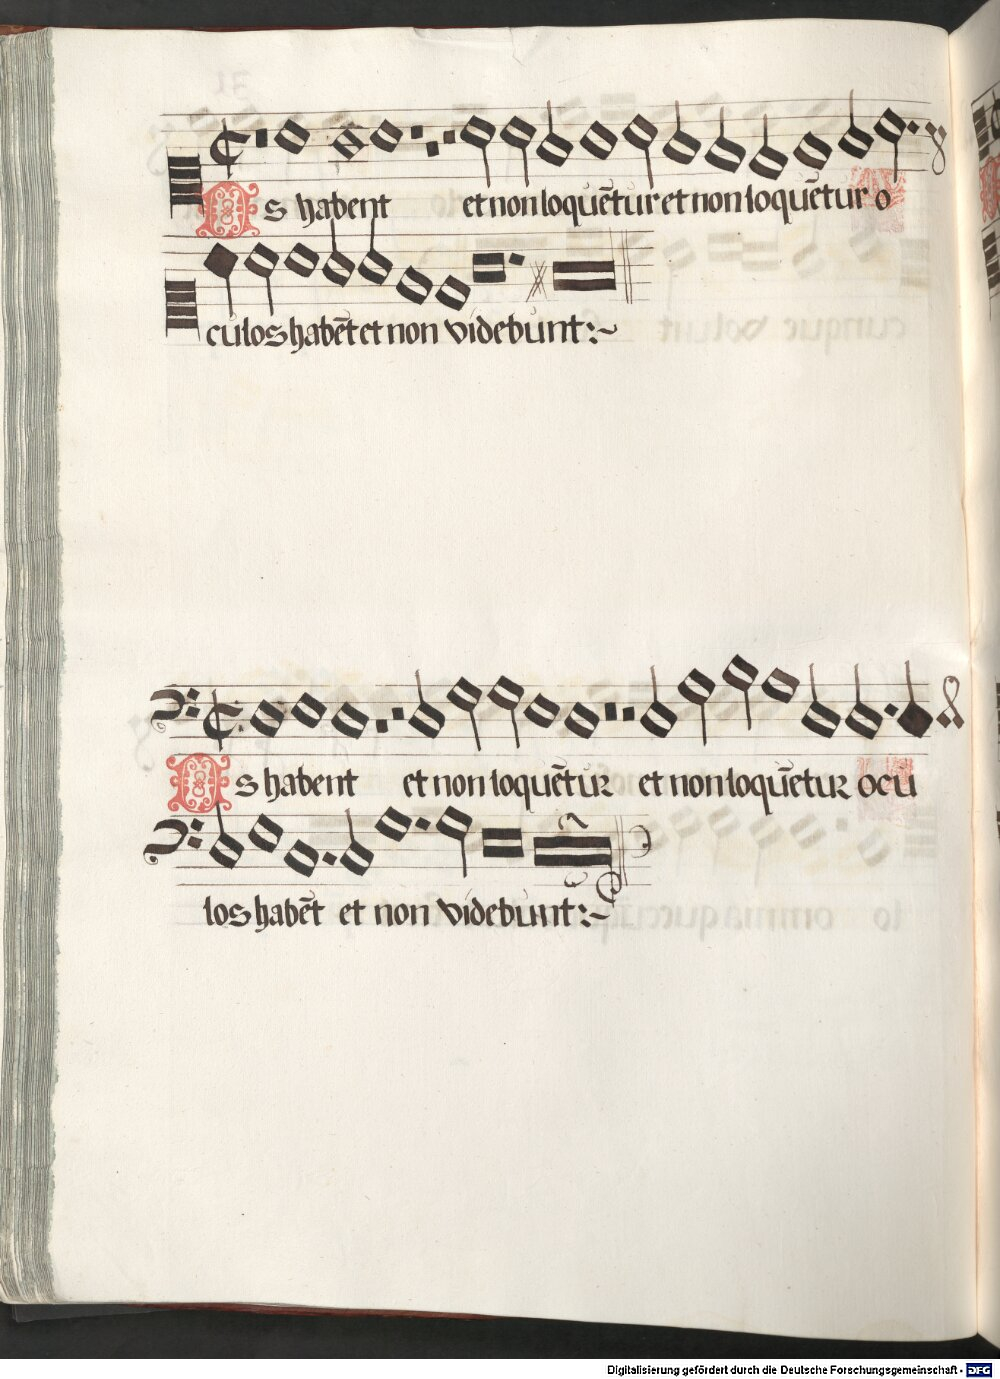 Os habent et non loquēt᷑ur et non loquētur o
culos habēt et non videbunt:~
Os habent et non loquētur et non loquētur ocu
los habēt et non videbunt:~
Digitalisierung gefördert durch die Deutsche Forschungsgemeinschaft - DFG